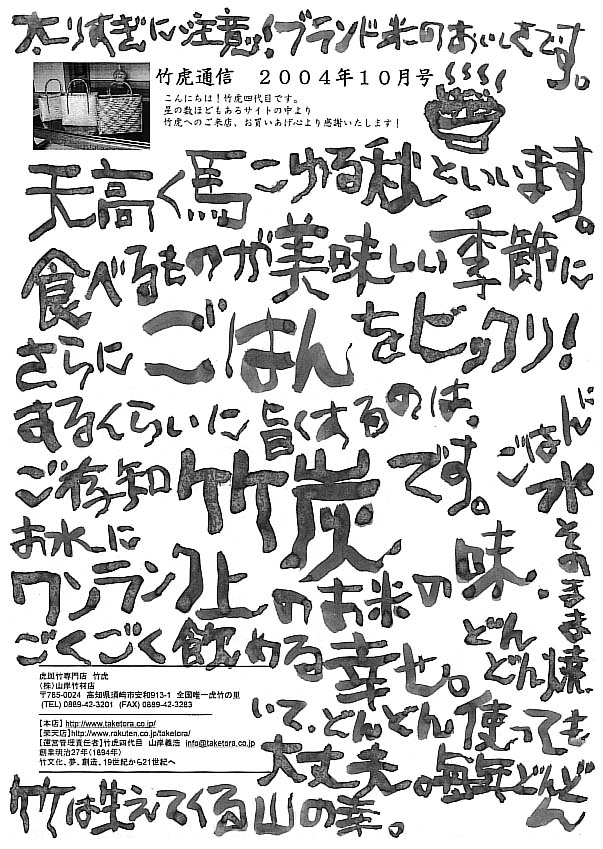 太りすぎに注意ッ!ブランド米のおいしさです。
竹虎通信 2004年10月号
こんにちは!竹虎四代目です。
星の数ほどもあるサイトの中より
竹虎へのご来店、お買いあげ心より感謝いたします!
天高く馬こゆる秋といいます。
食べるものが美味しい季節に
さらにごはんをビックリ!
するくらいに旨くするのは、
ご存知竹炭です。ごはんに
お水に 水
ワンランク上のお米の味.
ごくごく飲める幸せ。
そのまま
どんどん焼
いてどんどん使っても
大丈夫。毎年どんどん
竹は生えてくる山の幸。
虎斑竹専門店 竹虎
(株)山岸竹材店
〒785-0024 高知県須崎市安和913-1 全国唯一虎竹の里
(TEL) 0889-42-3201 (FAX) 0889-42-3283
【本店】http://www.taketora.co.jp/
【楽天店】http://www.rakuten.co.jp/taketora/
【運営管理責任者】竹虎四代目 山岸義浩 info@taketora.co.jp
創業明治27年(1894年)
竹文化、夢、創造。19世紀から21世紀へ